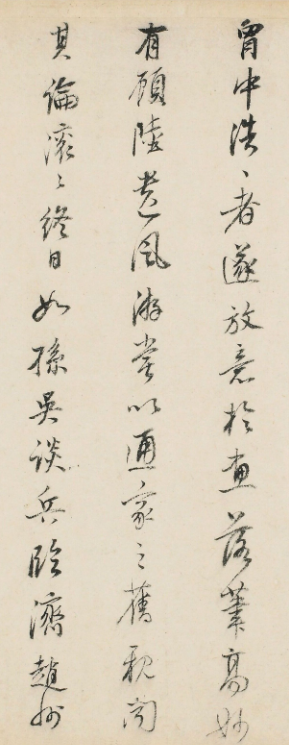 胷中浩〻者遂放意於畫落筆高妙
有顧陸遺風游嘗以通家之舊親聞
其論滚〻終日如孫吳談兵臨濟趙州